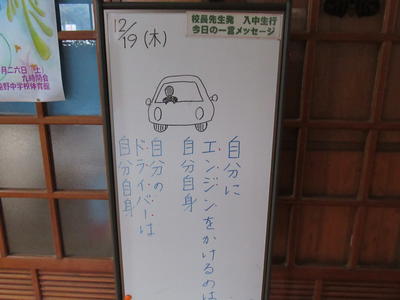 校長先生発　入中生行
今日の一言メッセージ
12/19(木)
自分に
エンジンをかけるのは
自分自身
自分の
ドライバーは
自分自身
月二六日(土)
九時開会
野中学校体育館